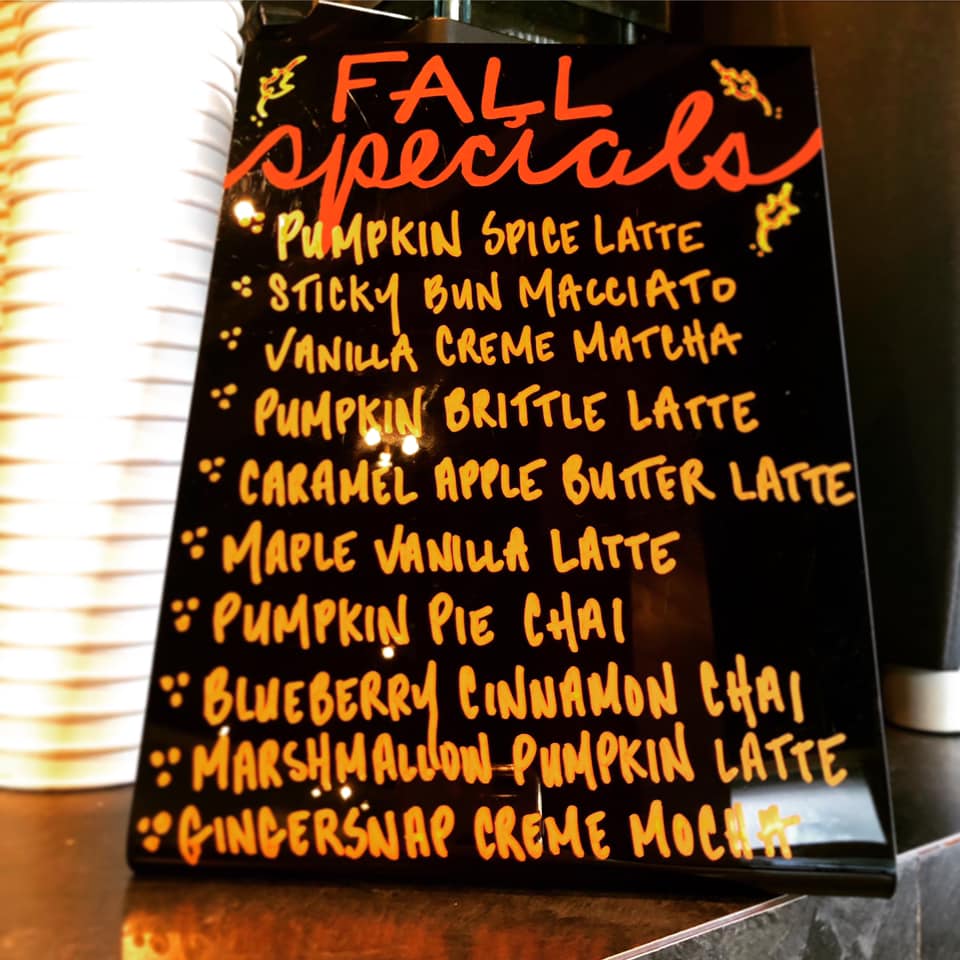 FALL
specials
PUMPKIN SPICE LATTE
STICKY BUN MACCIATO
VANILLA CREME MATCHA
PUMPKIN BRITTLE LATTE
CARAMEL APPLE BUTTER LATTE
MAPLE VANILLA LATTE
PUMPKIN PIE CHAI
BLUEBERRY CINNAMON CHAI
MARSHMALLOW PUMPKIN LATTE
GINGERSNAP CREME MOCHA